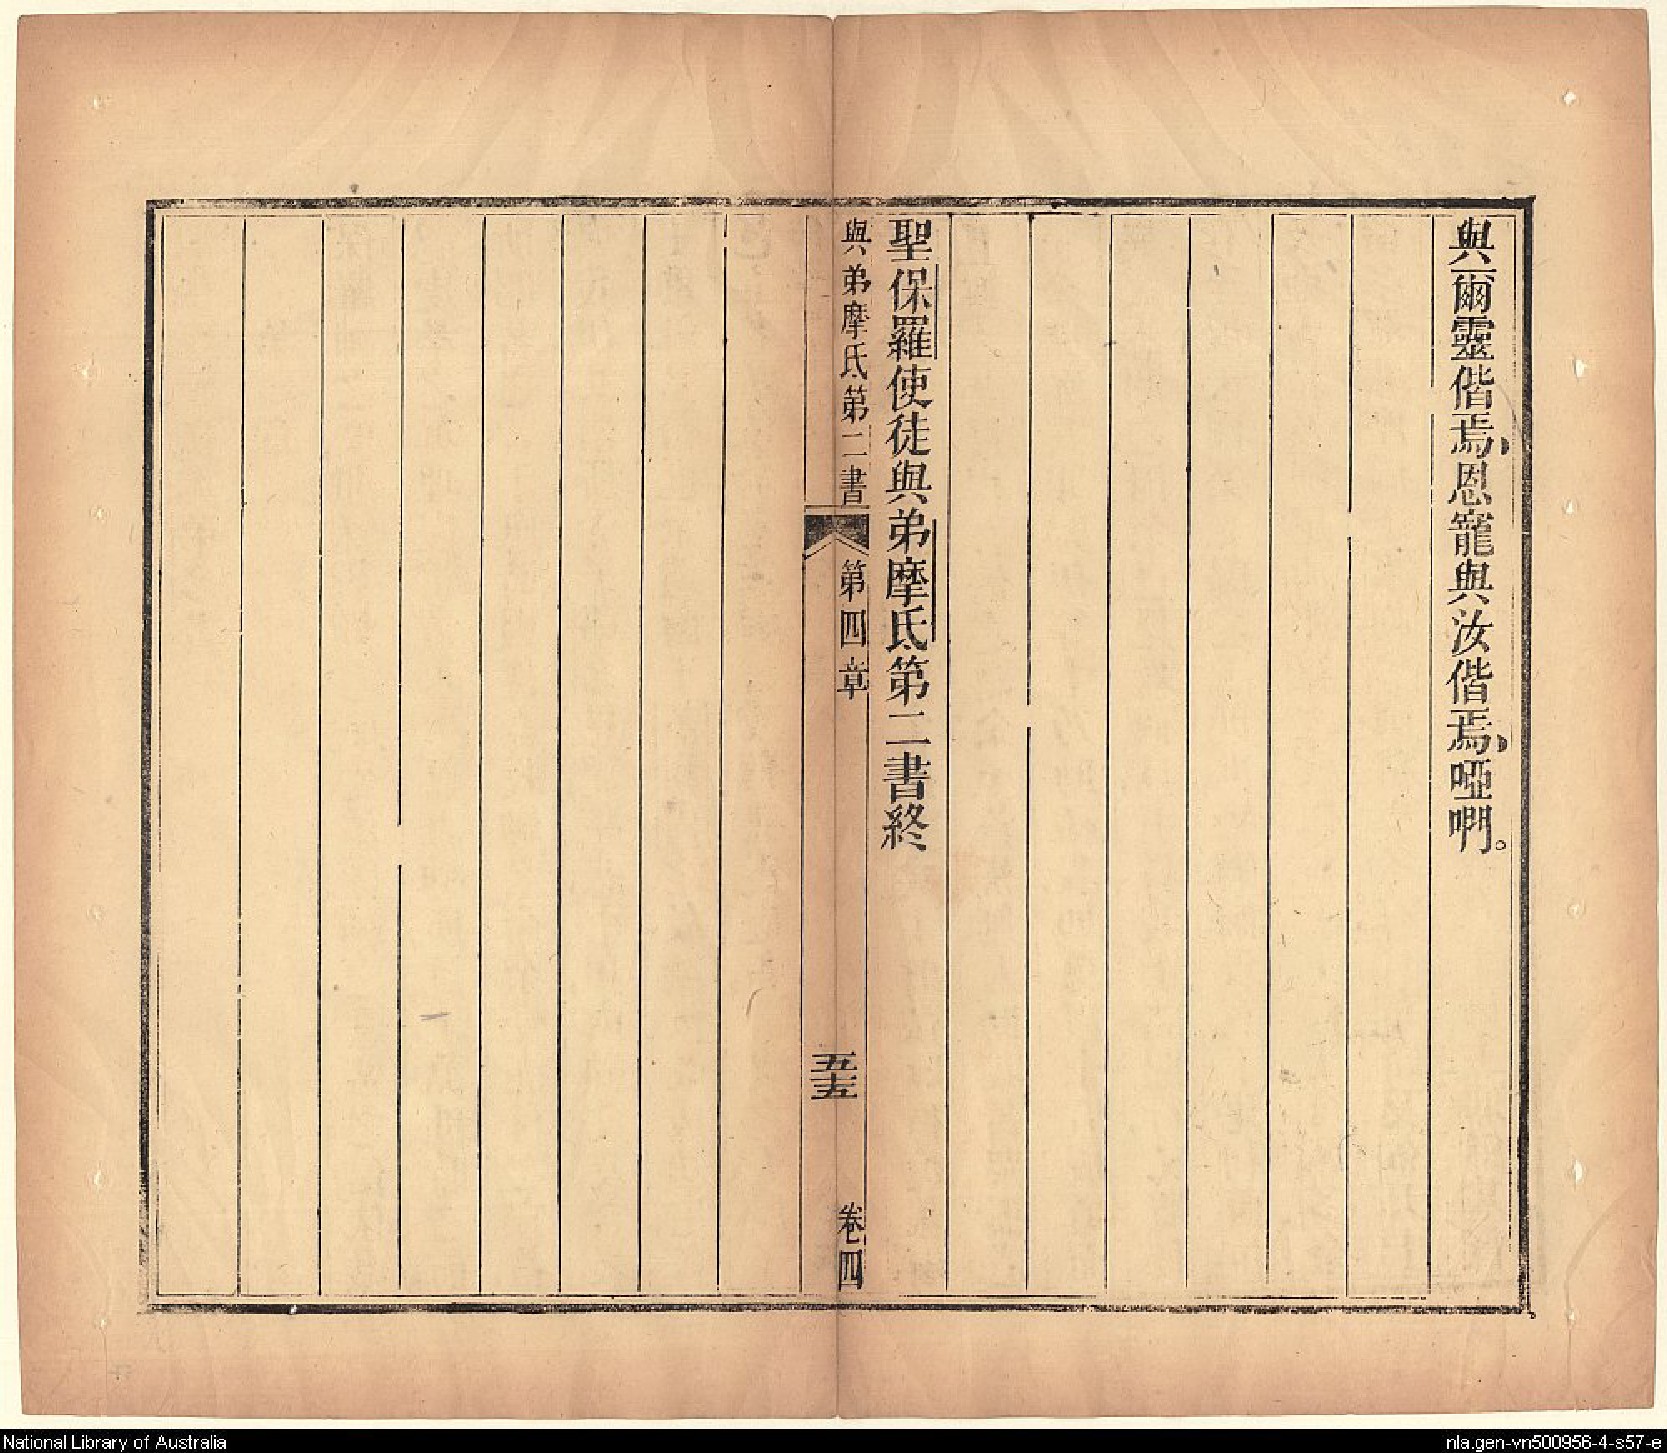 與爾靈偕焉、恩寵與汝偕焉、啞啊。
聖保羅使徒與弟摩氐第二書終
與弟摩氐第二書 第四章 五十五 卷四
National Library of Australia
nla.gen-vn500956-4-s57-e